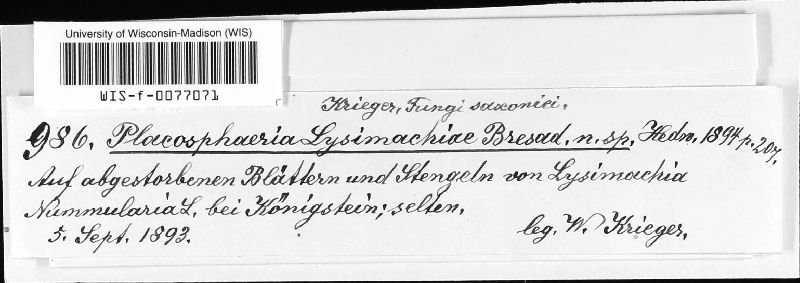 University of Wisconsin-Madison (WIS)
WIS-f-0077071
Krieger, Fungi saxonici.
986. Placosphaeria Lysimachiae Bresad. n. sp. Hedw. 1894 p. 207.
Auf abgestorbenen Blättern und Stengeln von Lysimachia
Nummularia L. bei Königstein; selten.
5. Sept. 1893.
leg. W. Krieger.